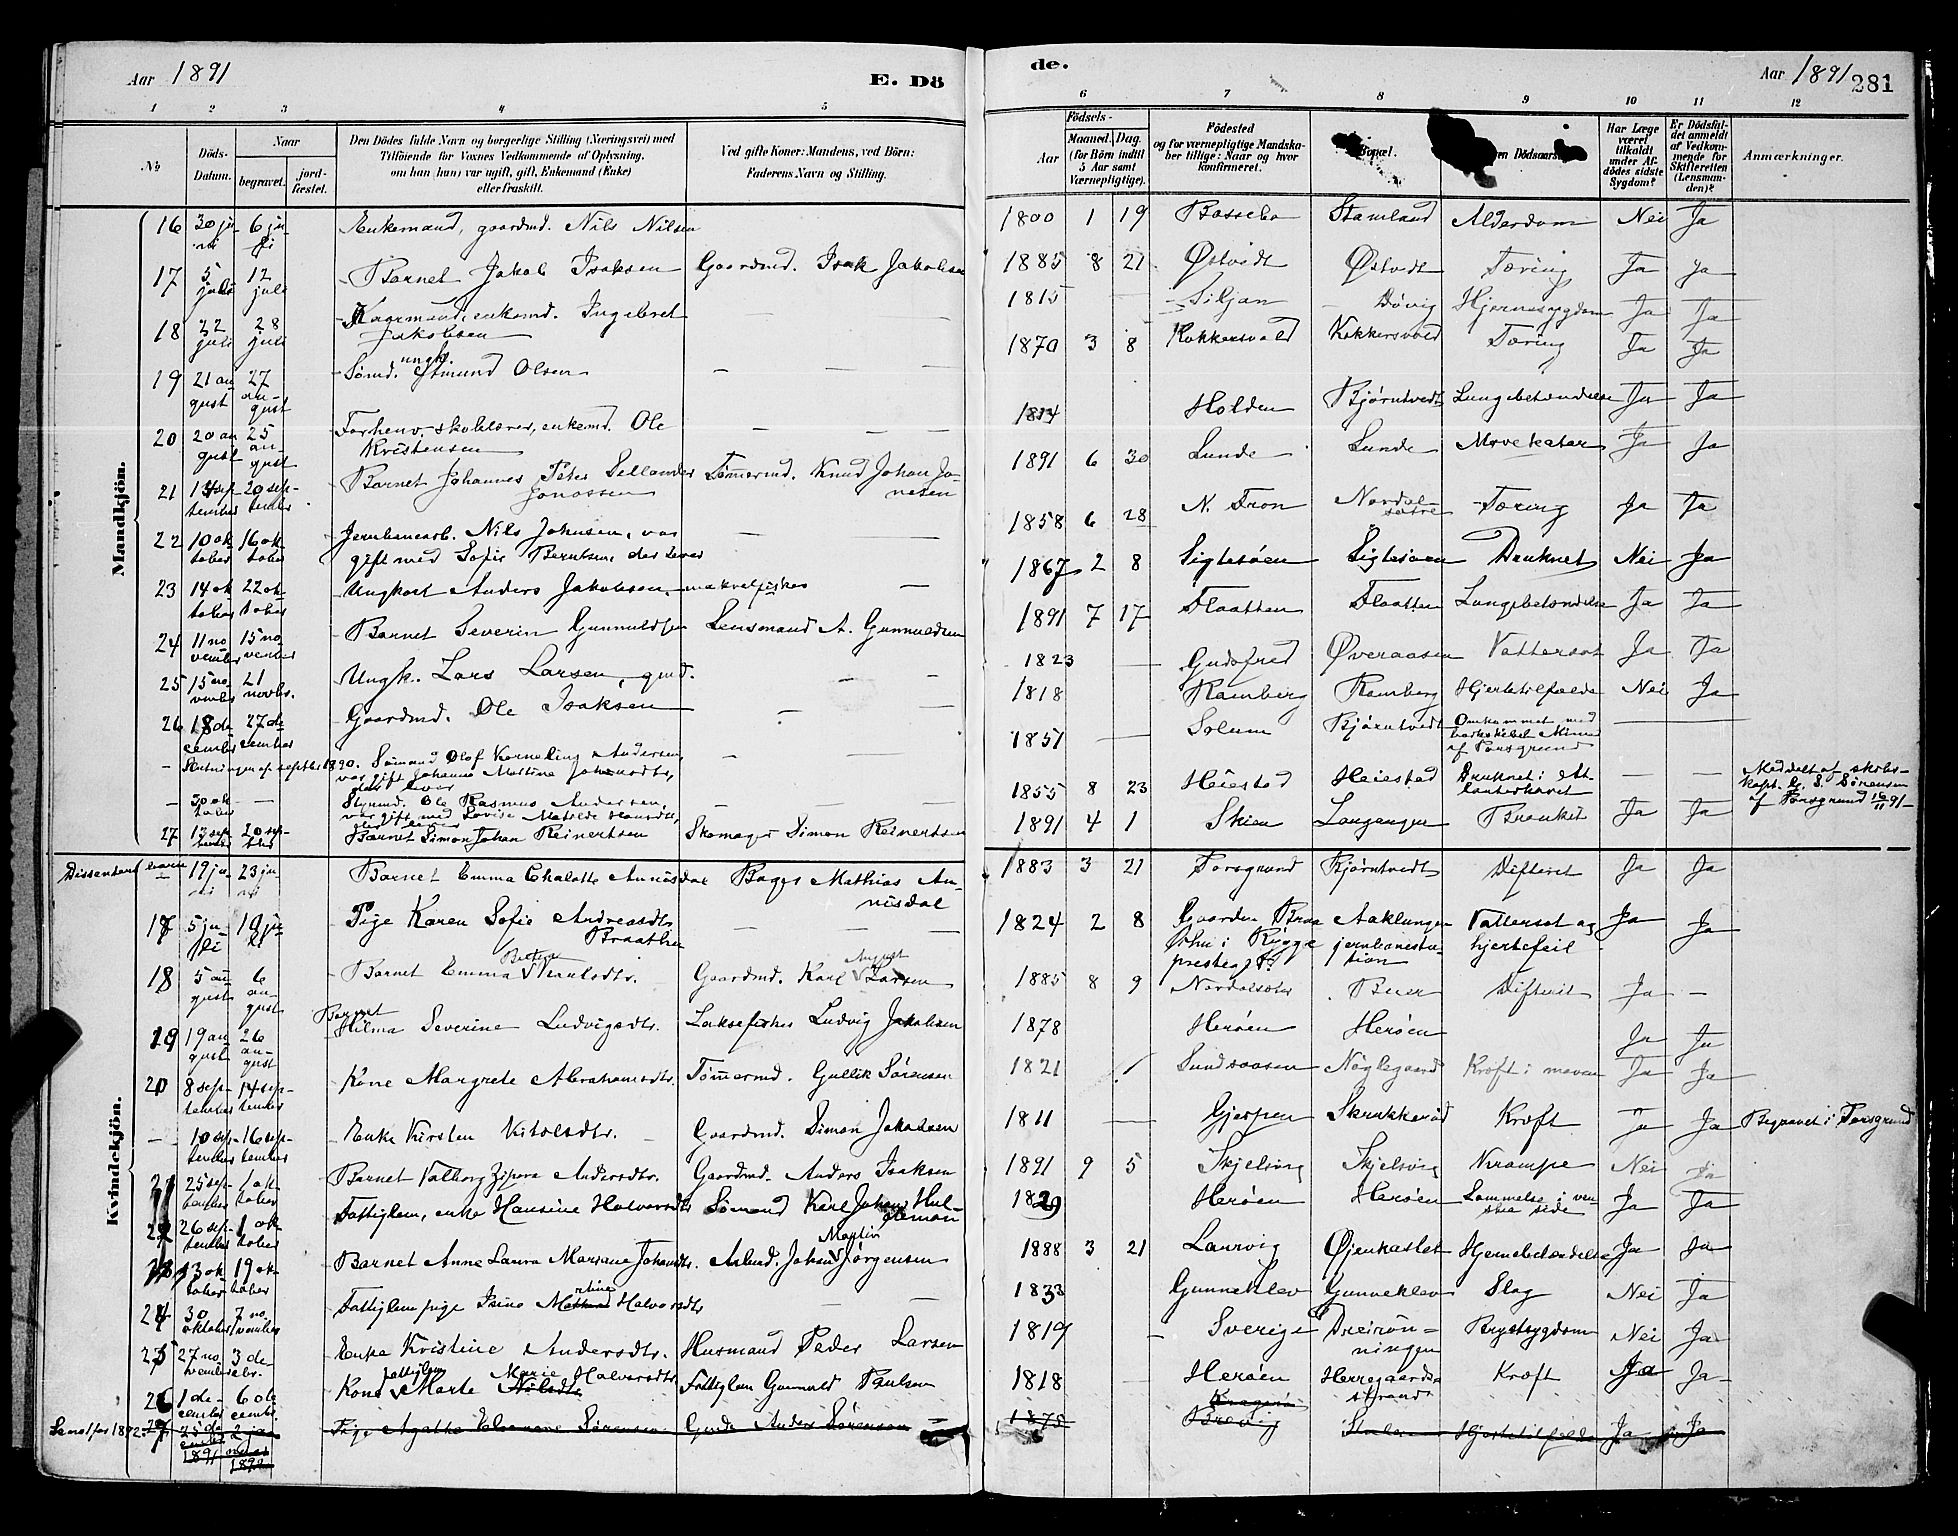 Aar 1891
E. Dö
de.
Aar 1891
281
1 2 3 4 5 6 7 8 9 10 11 12
No
Döds-Datum.
Naar
begravet.
jord-fæstet.
Den Dödes fulde Navn og borgerlige Stilling (Næringsvei) med
Tilföiende for Voxnes Vedkommende af Oplysning,
om han (hun) var ugift, gift, Enkemand (Enke)
eller fraskilt.
Ved gifte Koner: Mandens, ved Börn:
Faderens Navn og Stilling.
Födsels-
Aar
Maaned. Dag.
(for Börn indtil
5 Aar samt
Værnepligtige).
Födested
og for værnepligtige Mandska-
ber tillige: Naar og hvor
konfirmeret.
Har Læge
været
tilkaldt
under Af-
dödes sidste
Sygdom?
Er Dödsfal-
det anmeldt
af Vedkom-
mende for
Skifteretten
(Lensman-
den)?
Anmærkninger.
Mandkjön.
16 30 juni 6 juli Enkemand, gaardmd. Nils Nilsen 1800 1 19 Bassebo Stamland Alderdom Nei Ja
17 5 juli 12 juli Barnet Jakob Isaksen Gaardmd. Isak Jakobsen 1885 8 21 Østvedt Østvedt Tæring Ja Ja
18 22 juli 28 juli enkemd. Ingebret Jakobsen 1815 Siljan Døvig Hjernesygdom Ja Ja
19 21 august 27 august Sømd. ungk. Olsen 1870 3 8 Kokkersvold Kokkersvold Tæring Ja Ja
20 20 august 25 august Forhenv. skolelærer, enkemd. Ole Kristensen 1814 Holden Bjørntvedt Lungebetændelse Ja Ja
21 14 september 20 september Barnet Johannes Peter Sellander Jonassen Tømmermd. Knud Johan Jonesen 1891 6 30 Lunde Lunde Mavekatar Ja Ja
22 10 oktober 16 oktober Jernbanearb. Nils Johnsen, var
gift med Sofie Berntsen, der lever 1858 6 28 N. Fron Nordalsætre Tæring Ja Ja
23 14 oktober 22 oktober Ungkarl Anders Jakobsen, makrelfisker 1867 2 8 Sigtesøen Sigtesøen Druknet Nei Ja
24 11 november 15 november Barnet Severin Gunnuldsen Lensmand A. Gunnuldsen 1891 7 17 Flaatten Flaatten Lungebetændelse Ja Ja
25 15 november 21 novbr. Ungk. Lars Larsen, gmd. 1823 Øveraasen Vattersot Ja Ja
26 18 december 27 december Gaardmd. Ole Isaksen 1818 Ramberg Ramberg Hjertetilfælde Nei Ja
- Slutningen af septbr 1890. Sømand Olof Andersen,
var gift Johanne Martine
der lever 1851 Solum Bjørntvedt Omkommet med
af Porsgrund
- 30 oktober Styrmd. Ole Rasmus Andersen,
var gift med Lovise
der lever 1855 8 23 Heiestad Heiestad Druknet i Atlanterhavet Meddelt af skibskapt. G. S. Sörensen
af Porsgrund 16/11 91
27 17 september 20 september Barnet Simon Johan Reinertsen Skomager Simon Reinertsen 1891 4 1 Skien Langangen Bronkit Ja Ja
Kvindekjön.
Dissenterbarn 19 juni 23 juni Barnet Emma Chalotte Annisdal Bager Mathias Annisdal 1883 3 21 Porsgrund Bjørntvedt Difterit Ja Ja
17 5 juli 10 juli Pige Karen Sofie Andreasdtr. Braathen 1824 2 8 Gaarden i Rygge
prestegj. Aaklungen
jernbanestation Vattersot og
hjertefeil Ja Ja
18 5 august 6 august Barnet Emma Karlsdtr. Gaardmd. Karl August Larsen 1885 8 9 Nordalsæter Buer Difterit Ja -
19 19 august 26 august Barnet Hilma Severine Ludvigsdtr. Laksefisker Ludvig Jakobsen 1878 Herøen Herøen Ja Ja
20 8 september 14 september Kone Margrete Abrahamsdtr. Tømmermd. Gullik Sörensen 1821 Sundsaasen Nøglegaard Kræft i maven Ja Ja
- 10 september 16 september Enke Kirsten Gaardmd. Simon Jakobsen 1811 Gjerpen Skrukkerød Kræft Ja Ja Begravet i Porsgrund
21 25 september 1 oktober Barnet Valborg Zipora Andersdtr. Gaardmd. Anders Isaksen 1891 9 5 Skjelsvig Skjelsvig Krampe Nei Ja
22 26 september 1 oktober Fattiglem, enke Hansine Halvorsdtr. Sømand Karl Johan 1829 Herøen Herøen Lammelse i venstre side Ja Ja
23 13 oktober 19 oktober Barnet Anne Laura Mariane Johansdtr. Arbmd. Johan Martin Jörgensen 1888 3 21 Laurvig Øjenkastet Hjernebetændelse Ja Ja
24 30 oktober 7 november Fattiglem pige Halvorsdtr. 1833 Gunneklev Gunneklev Slag Nei Ja
25 27 november 3 debr. Enke Kristine Andersdtr. Husmand Peder Larsen 1819 Sverige Brystsygdom Nei Ja
26 1 december 6 decembr. Kone fattiglem Marte Marie Halvorsdtr. Nilsdtr. Fattiglem Gunnuld Paulsen 1818 Herøen Herregaardsstrand Kræft Ja Ja
27 25 december 1891 2 januar 1892 Pige Agathe Sørensen Anders Sørensen 1875 Kragerø Brevig Hjertetilfælde Ja Ja